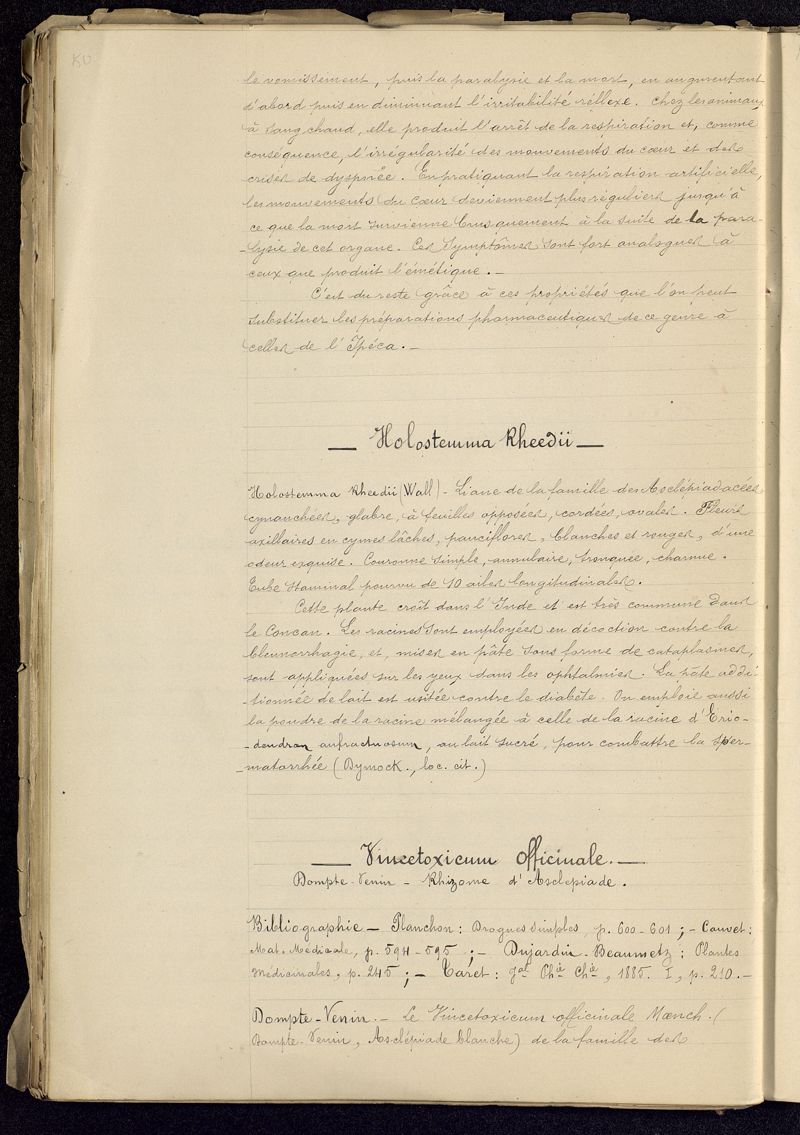 le vomissement, puis la paralysie et la mort, en augmentant
d'abord puis en diminuant l'irritabilité réflexe. Chez les animaux
à sang chaud, elle produit l'arrêt de la respiration et, comme
conséquence, l'irrégularité des mouvements du cœur et des
crises de dyspnée. En pratiquant la respiration artificielle,
les mouvements du cœur deviennent plus réguliers jusqu'à
ce que la mort survienne brusquement à la suite de la para-
-lysie de cet organe. Ces symptômes sont fort analogues à
ceux que produit l'émétique. —
C'est du reste grâce à ces propriétés que l'on peut
substituer les préparations pharmaceutiques de ce genre à
celles de l'Ipéca. —
— Holostemma Rheedii —
Holostemma Rheedii (Wall) - Liane de la famille des Asclépiadacées
cynanchées, glabre, à feuilles opposées, cordées, ovales. Fleurs
axillaires en cymes lâches, pauciflores, blanches et rouges, d'une
odeur exquise. Couronne simple, annulaire, tronquée, charnue.
Tube staminal pourvu de 10 ailes longitudinales.
Cette plante croît dans l'Inde et est très commune dans
le Concan. Les racines sont employées en décoction contre la
blennorrhagie, et, mises en pâte sous forme de cataplasmes,
sont appliquées sur les yeux dans les ophtalmies. La pâte addi-
-tionnée de lait est usitée contre le diabète. On emploie aussi
la poudre de la racine mélangée à celle de la racine d'Erio-
-dendron anfractuosum, au lait sucré, pour combattre la sper-
-matorrhée (Dymock., loc. cit.)
— Vincetoxicum Officinale. —
Dompte-Venin - Rhizome d'Asclépiade.
Bibliographie — Planchon : Drogues simples, p. 600-601 ; — Cauvet :
Mat. Médicale, p. 594-595 ; — Dujardin-Beaumetz : Plantes
Médicinales, p. 245 ; — Taret : Jal Phie Chie, 1885. I, p. 210. —
Dompte-Venin. — Le Vincetoxicum officinale Mœnch. (
Dompte-Venin, Asclépiade blanche) de la famille des